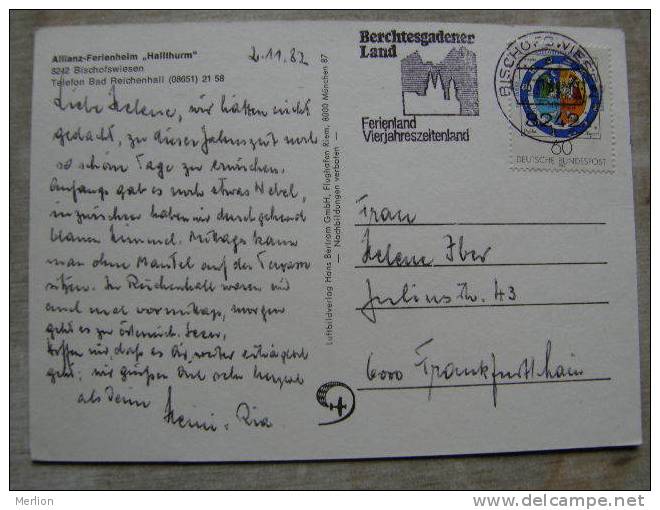 Allianz-Ferienheim „Hallthurm"
8242 Bischofswiesen
Telefon Bad Reichenhall (08651) 21 58
2.11.82
Liebe Helene, wir hätten nicht
gedacht, zu dieser Jahreszeit noch
so schöne Tage zu erwischen.
Anfangs gab es noch etwas Nebel,
inzwischen haben wir durchgehend
blauen Himmel. Mittags kann
man ohne Mantel auf der Terrasse
sitzen. In Reichenhall waren wir
auch mal vormittags, morgen
geht es zu
hoffen wir, daß es Dir weiter erträglich
geht; wir grüßen Dich sehr herzlich
als Deine
Heini + Ria
Luftbildverlag Hans Bertram GmbH, Flughafen Riem, 8000 München 87
— Nachbildungen verboten —
Berchtesgadener
Land
Ferienland
Vierjahreszeitenland
BISCHOFSWIESEN
8242
60
DEUTSCHE BUNDESPOST
Frau
Helene Iber
Juliusstr. 43
6000 Frankfurt/Main
Merlion
www.delcampe.net